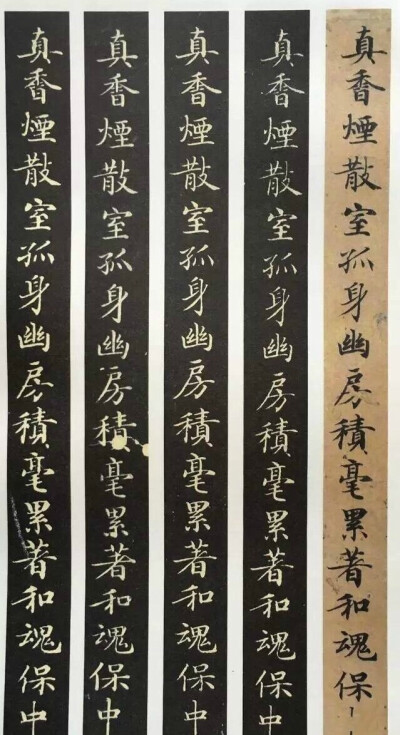 真香煙散室孤身幽房積毫累著和魂保
真香煙散室孤身幽房積毫累著和魂保中
真香煙散室孤身幽房積毫累著和魂保中
真香煙散室孤身幽房積毫累著和魂保中
真香煙散室孤身幽房積毫累著和魂保中